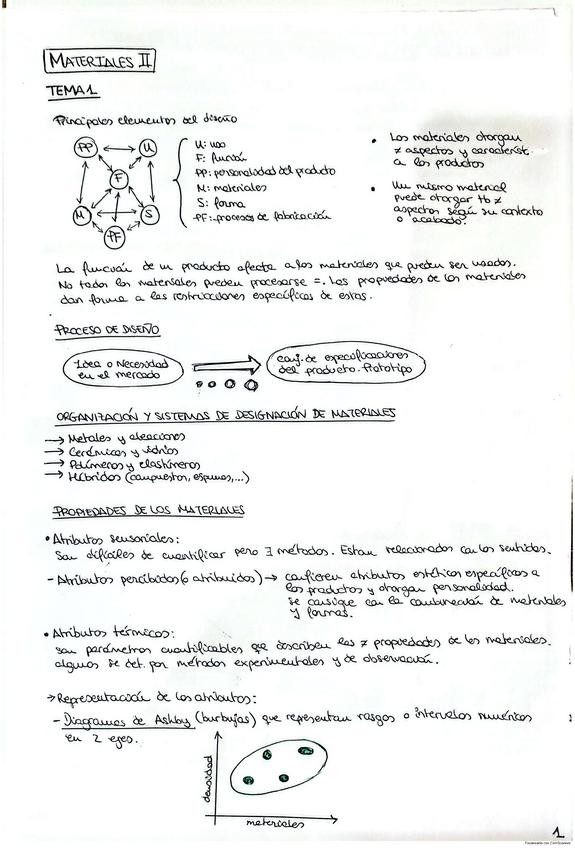 MATERIALES II
TEMA 1
Principales elementos del diseño
PP
U
F
M
S
PF
U: uso
F: función
PP: personalidad del producto
M: materiales
S: forma
PF: procesos de fabricación
• Los materiales otorgan
≠ aspectos y característ.
a los productos
• Un mismo material
puede otorgar tb ≠
aspectos según su contexto
o acabado.
La función de un producto afecta a los materiales que pueden ser usados.
No todos los materiales pueden procesarse =. Las propiedades de los materiales
dan forma a las restricciones específicas de estas.
PROCESO DE DISEÑO
Idea o Necesidad
en el mercado
conj. de especificaciones
del producto. Prototipo
ORGANIZACIÓN Y SISTEMAS DE DESIGNACIÓN DE MATERIALES
→ Metales y aleaciones
→ Cerámicos y vidrios
→ Polímeros y elastómeros
→ Híbridos (compuestos, espumas,...)
PROPIEDADES DE LOS MATERIALES
• Atributos sensoriales:
Son difíciles de cuantificar pero ∃ métodos. Están relacionados con los sentidos.
- Atributos percibidos (o atribuidos) → confieren atributos estéticos específicos a
los productos y otorgan personalidad.
Se consigue con la combinación de materiales
y formas.
• Atributos térmicos:
son parámetros cuantificables que describen las ≠ propiedades de los materiales.
algunos se det. por métodos experimentales y de observación.
→ Representación de los atributos:
- Diagramas de Ashby (burbujas) que representan rasgos o intervalos numéricos
en 2 ejes.
densidad
materiales
1
Escaneado con CamScanner